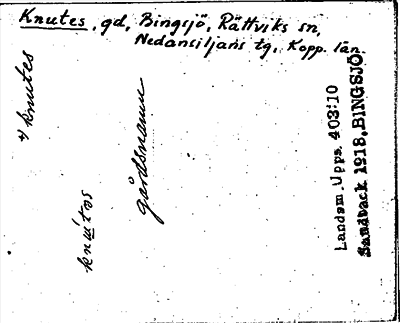 Knutes, gd, Bingsjö, Rättviks sn,
Nedansiljans tg, Kopp. län.
knutes
knutos
gårdsnamn
Landsm. Upps. 403:10
Sandvack 1918. BINGSJÖ